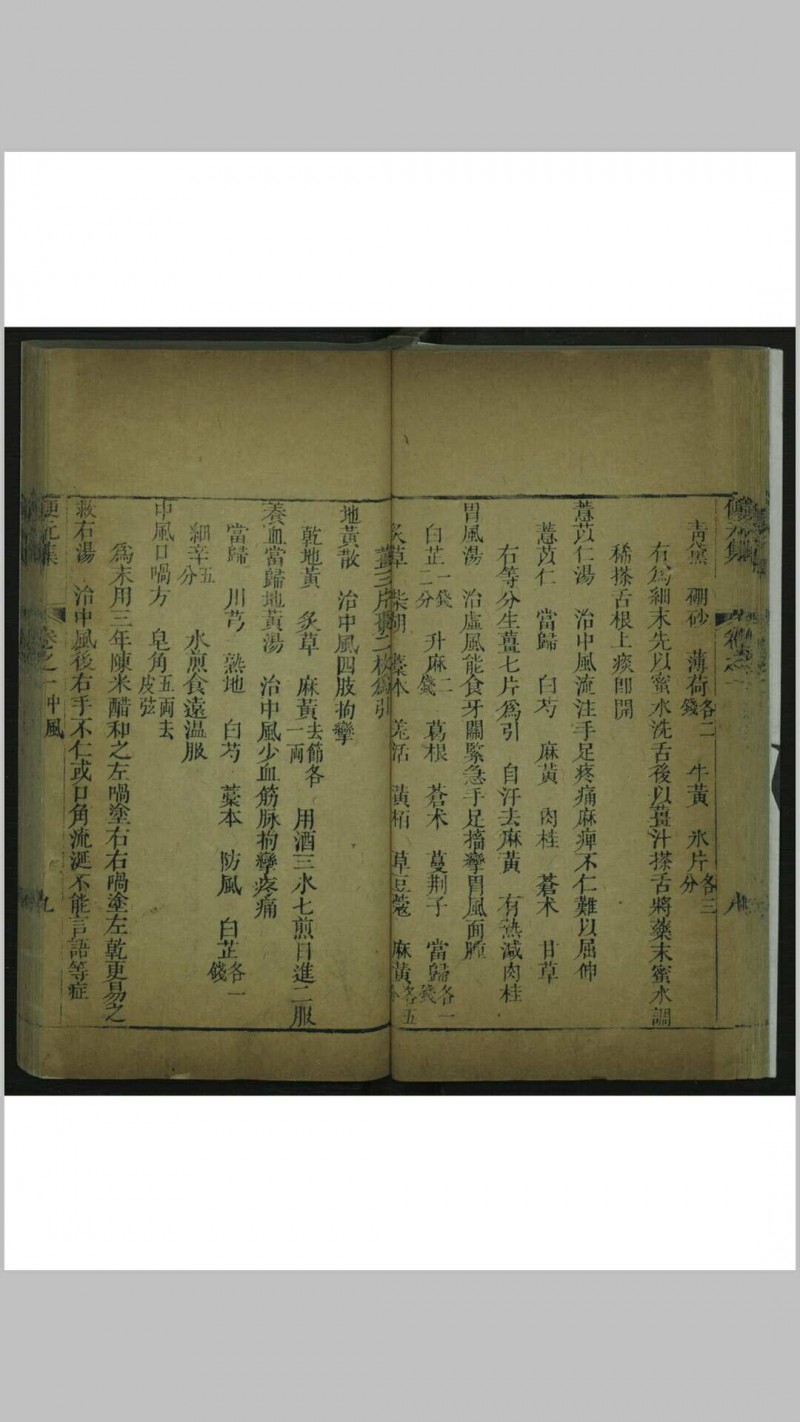 青黛　硼砂　薄荷各二錢　牛黃　氷片各三分
右爲細末先以蜜水洗舌後以薑汁搽舌將藥末蜜水調
稀搽舌根上痰卽開
薏苡仁湯　治中風流注手足疼痛麻痺不仁難以屈伸
薏苡仁　當歸　白芍　麻黃　肉桂　蒼术　甘草
右等分生薑七片爲引　自汗去麻黃　有熱減肉桂
胃風湯　治虛風能食牙關緊急手足搐攣胃風面腫
白芷一錢二分　升麻二錢　葛根　蒼术　蔓荆子　當歸各一錢
炙草　柴胡　藁本　羌活　黃栢　草豆蔻　麻黃各五分
薑三片棗二枚爲引
地黃散　治中風四肢拘攣
乾地黃　炙草　麻黃去節各一兩　用酒三水七煎日進二服
養血當歸地黃湯　治中風少血筋脉拘攣疼痛
當歸　川芎　熟地　白芍　藁本　防風　白芷各一錢
細辛五分　水煎食遠温服
中風口喎方　皂角五兩去皮弦
爲末用三年陳米醋和之左喎塗右右喎塗左乾更易之
救右湯　治中風後右手不仁或口角流涎不能言語等症
卷之一　中風　九